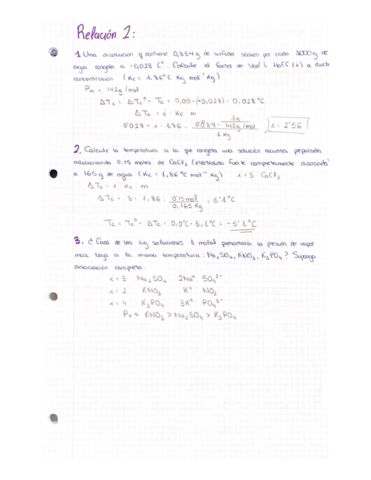 Relación 2:
1. Una disolución q contiene 0,834 g de sulfato sódico por cada 1000 g de
agua congela a -0,028 Cº. Calcular el factor de Van't Hoff (i) a dicha
concentración (Kc = 1,86ºC Kg mol⁻¹ Kg)
Pm = 142 g/mol
ΔTc = ΔTcº - Tc = 0,00 - (-0,028) = 0,028 ºC
ΔTc = i · Kc m
0'028 = i · 1,86 · 0,834 · 1n / 142g/mol / 1 Kg i = 2'56
2. Calcule la temperatura a la que congela una solución acuosa preparada
adicionando 0,15 moles de CaCl₂ (electrolito fuerte completamente disociado)
a 165 g de agua (Kc = 1,86 ºC mol⁻¹ Kg) i = 3 CaCl₂
ΔTc = i · Kc m
ΔTc = 3 · 1,86 · 0'15 mol / 0,165 Kg = 5'1ºC
Tc = Tcº - ΔTc = 0,0ºC - 5,1ºC = -5'1ºC
3. ¿Cual de las sig soluciones 1 molal presentará la presión de vapor
mas baja a la misma temperatura: Na₂SO₄, KNO₃, K₃PO₄? Suponga
disociación completa.
i = 3 Na₂SO₄ 2Na⁺ SO₄²⁻
i = 2 KNO₃ K⁺ NO₃
i = 4 K₃PO₄ 3K⁺ PO₄³⁻
Pv = KNO₃ > Na₂SO₄ > K₃PO₄